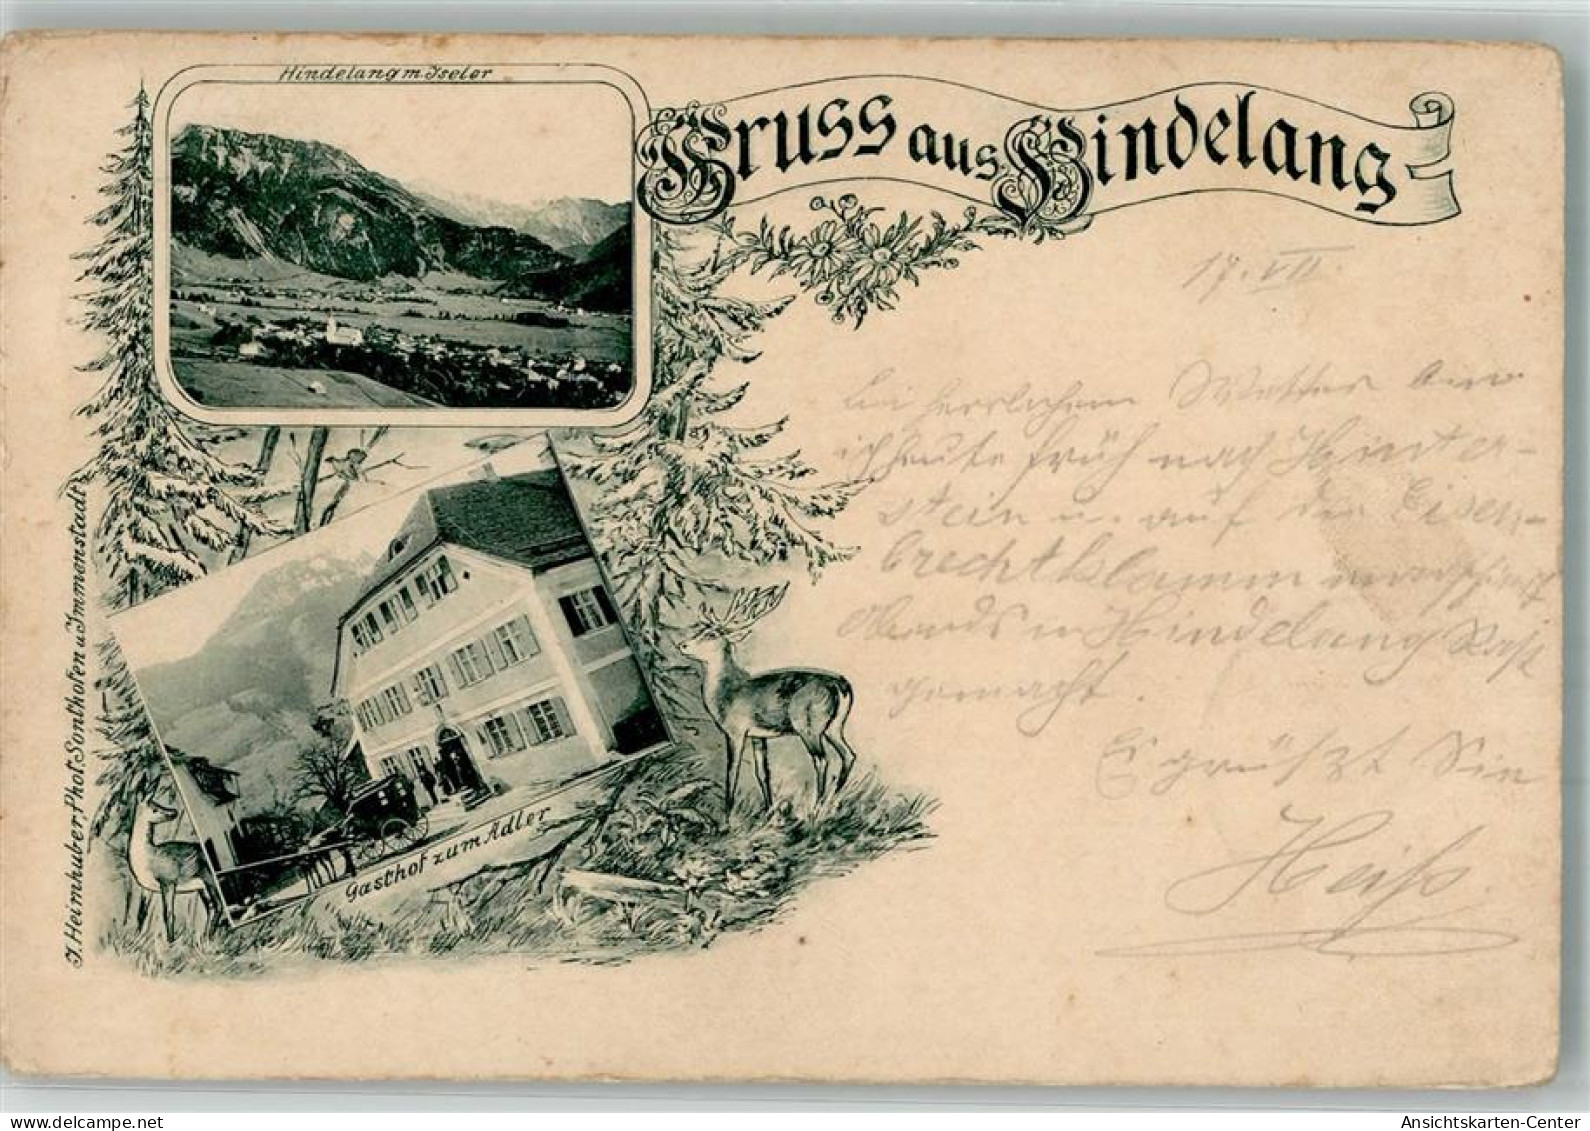 Hindelang m. Iseler
Gruss aus Hindelang
17. VII
Bei herrlichem Wetter bin
ich heute früh nach Hinter-
stein u. auf die Eisen-
brechtklamm marschiert
Abends in Hindelang Rast
gemacht.
Es grüßt Sie
Heiß
Gasthof zum Adler
J. Heimhuber, Phot. Sonthofen u. Immenstadt.
Ansichtskarten-Center